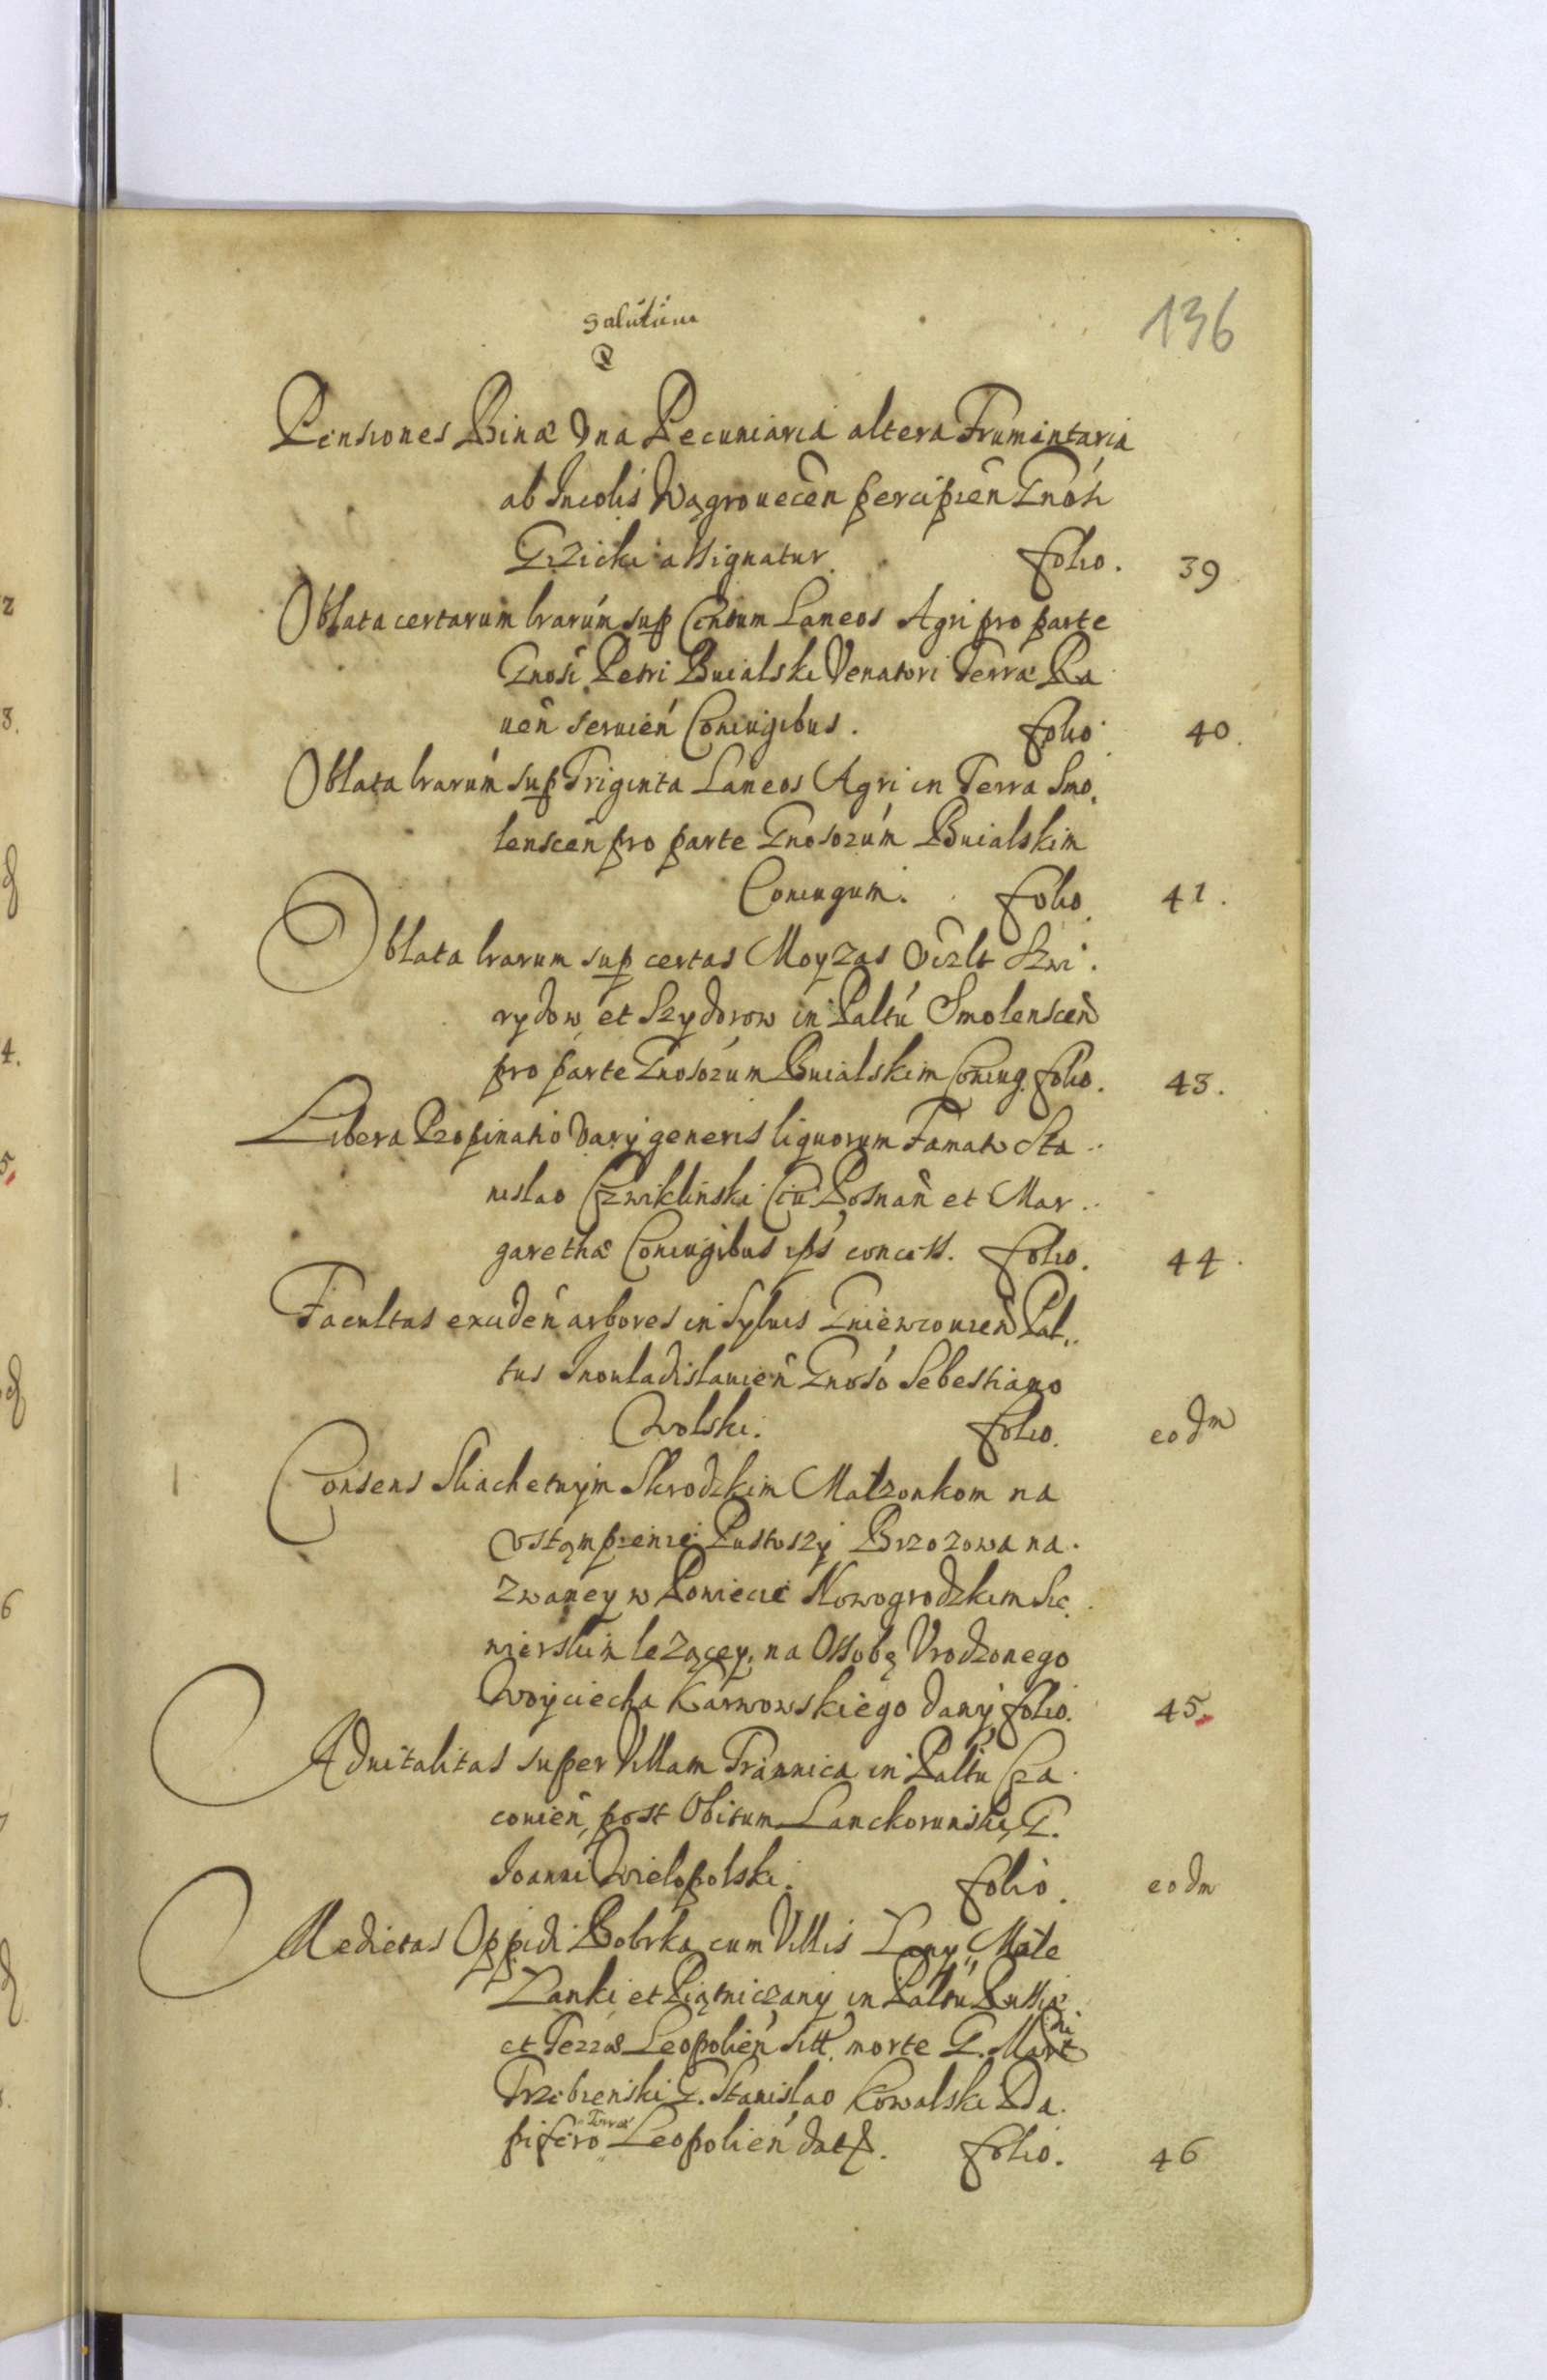 136
salutum
Pensiones Binæ Vna Pecuniaria altera Frumentaria
ab Incolis Wągrouecen̄ percipien̄ Gnoso
Grzicki assignatur. folio. 39
Oblata certarum lrarum sup Centum Laneos Agri pro parte
Gnosi Petri Buialski Venatori Terræ Ra
uen̄ seruien̄ Coniugibus. folio 40.
Oblata lrarum sup Triginta Laneos Agri in Terra Smo.
lenscen̄ pro parte Gnosorum Buialskim
Coniugum. folio. 41.
Oblata lrarum sup certas Moyzas
rydow et Szydorow in Paltu Smolenscen̄
pro parte Gnosorum Buialskim Coniug. folio. 43.
Libera Propinatio varij generis liquorum Famato Sta..
nislao Czwiklinski Ciui Posnan̄ et Mar..
garethæ Coniugibus ips concess. folio. 44.
Facultas exciden̄ arbores in Syluis Gniewcouien̄ Pal..
tus Inouladislauien̄ Gnoso Sebestiano
Wolski. folio. eodm
Consens Sliachetnym Skrodzkim Małzonkom na
Vstąmpienie Pustoszy Brzozowa na.
zwaney w Powiecie Nowogrodzkim Sie.
wierskim leżącey, na Ossobę Vrodzonego
Woyciecha Karwowskiego dany folio. 45.
Aduitalitas super Villam Trannica in Paltu Cra.
couien̄, post Obitum Lanckorunski, G.
Ioanni Wielopolski. folio. eodm
Medietas Oppidi Bobrka cum Villis Łany, Małe
Łanki et Piątniczany in Paltu Russiæ
et Terræ Leopolien̄ sitt. morte G. Martini
Trzebienski G. Stanislao Kowalski Da.
pifero Terræ Leopolien̄ dat. folio. 46